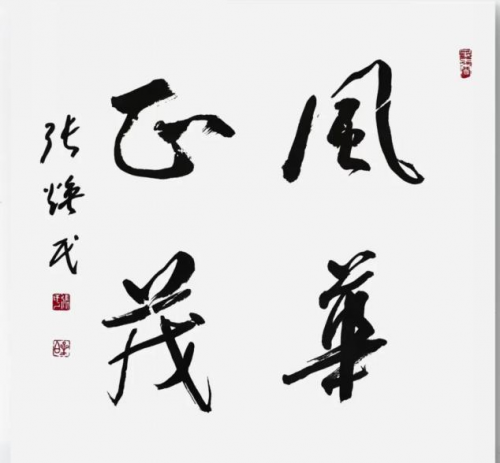 風華
正茂
张焕民